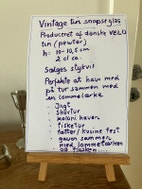 Vintage tin snapseglas
Produceret af danske VELO
tin (pewter)
h: 10-10,5 cm
2 cl ca.
Sælges stykvis
Perfekte at have med
på tur sammen med
en lommelærke
• Jagt
• skovtur
• koloni haven
• fisketur
• fætter/kusine fest
gaven sammen
med lommelærken
og flasken...